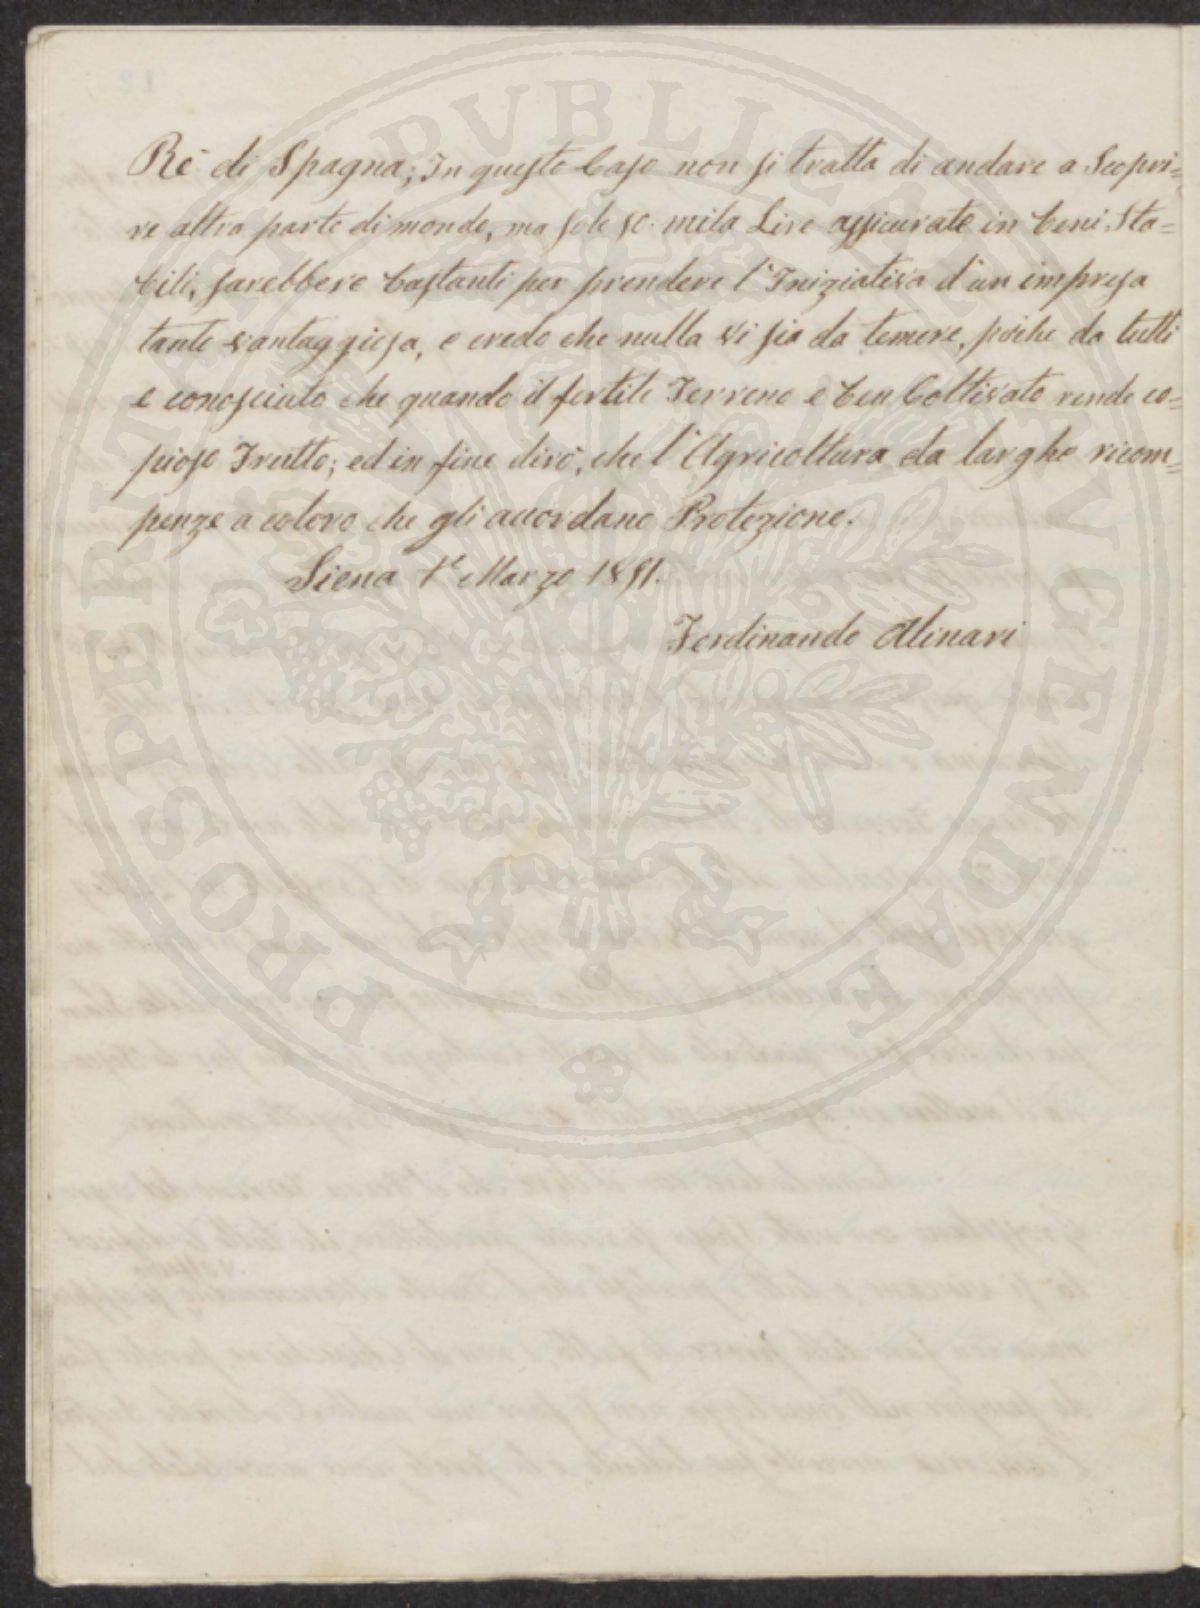 Rè di Spagna; In questo Caso non si tratta di andare a Scopri=
re altra parte di mondo, ma sole 50. mila Lire assicurate in beni Sta=
bili, sarebbero bastanti per prendere l'Iniziativa d'un impresa
tanto vantaggiosa, e credo che nulla vi sia da temere, poiche da tutti
e conosciuto che quando il fertile Terreno e ben Coltivato rende co=
pioso Frutto; ed in fine dirò, che l'Agricoltura da larghe ricom=
penze a coloro che gli accordano Protezione.
Siena 1° Marzo 1851.
Ferdinando Alinari
PROSPERITATI PVBLICAE AVGENDAE